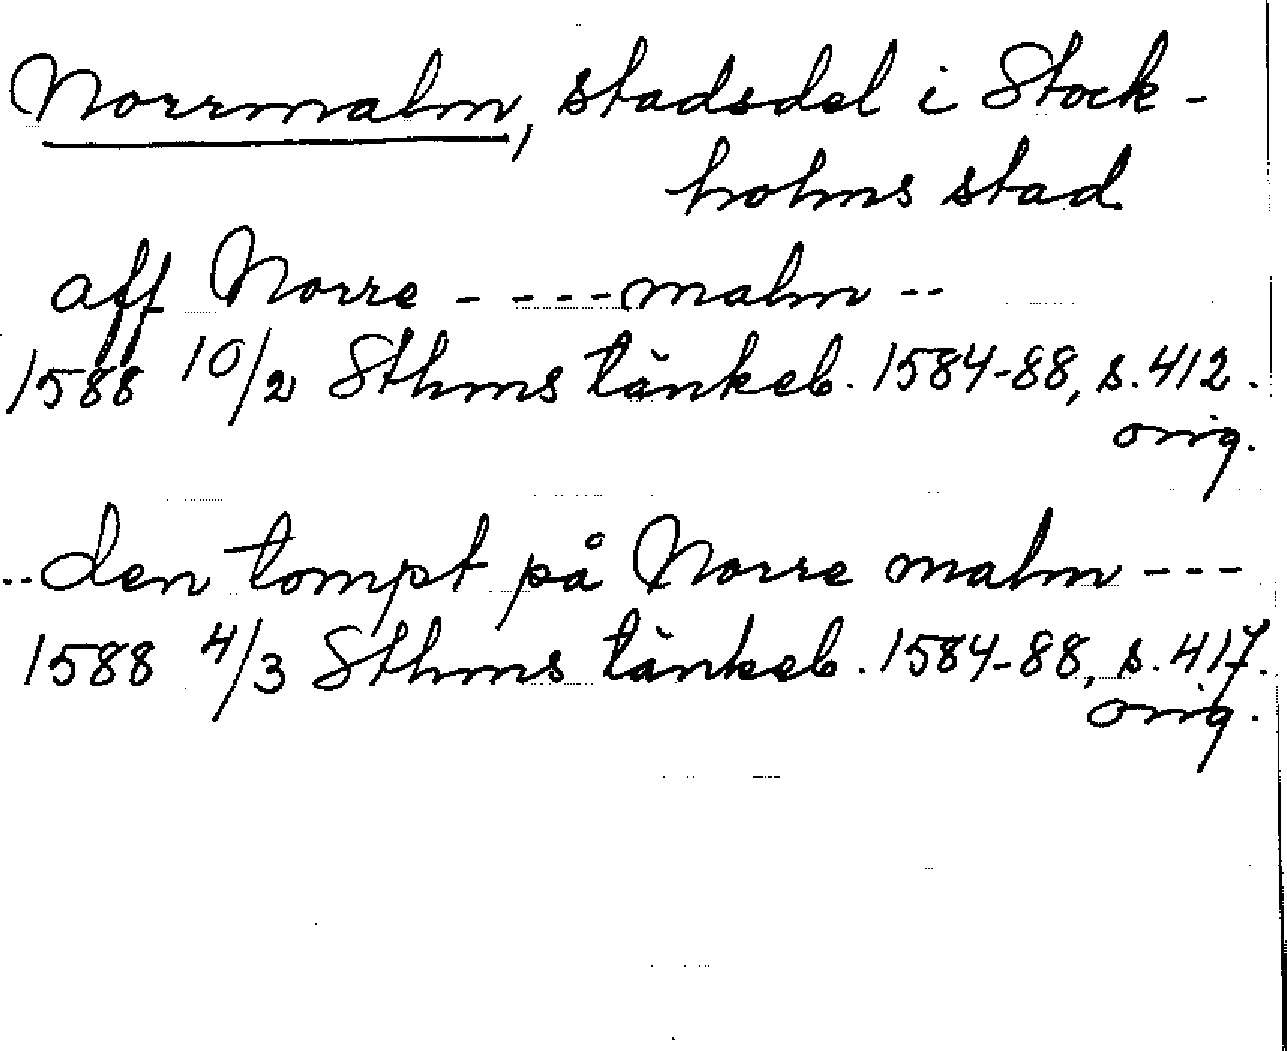 Norrmalm, stadsdel i Stock-
holms stad
aff Norre - - - - malm - -
1588 10/2 Sthms tänkeb. 1584-88, s. 412.
orig.
.. den tompt på Norre malm - - -
1588 4/3 Sthms tänkeb. 1584-88, s. 417.
orig.